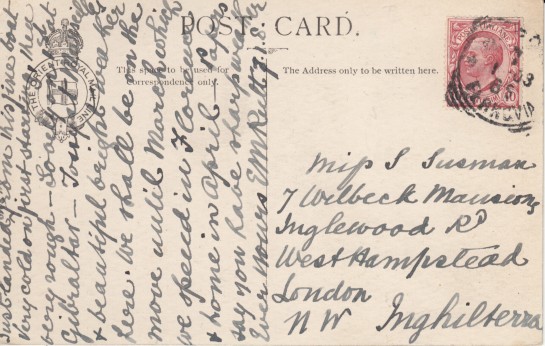 POST CARD.
This space to be used for
Correspondence only.
The Address only to be written here.
THE ORIENT ROYAL MAIL LINE
Just landed from this fine boat
very cold on just starting
very rough - Lovely
Gibraltar -
& beautiful bright weather
here we shall be on the
move until March which
we spend in Florence
& home in April. I hope
say you have sharp
Ever Yours EM Rutty
Miss S Susman
7 Welbeck Mansions
Inglewood Rd
West Hampstead
London
NW Inghilterra
POSTE ITALIANE
10
GENOVA